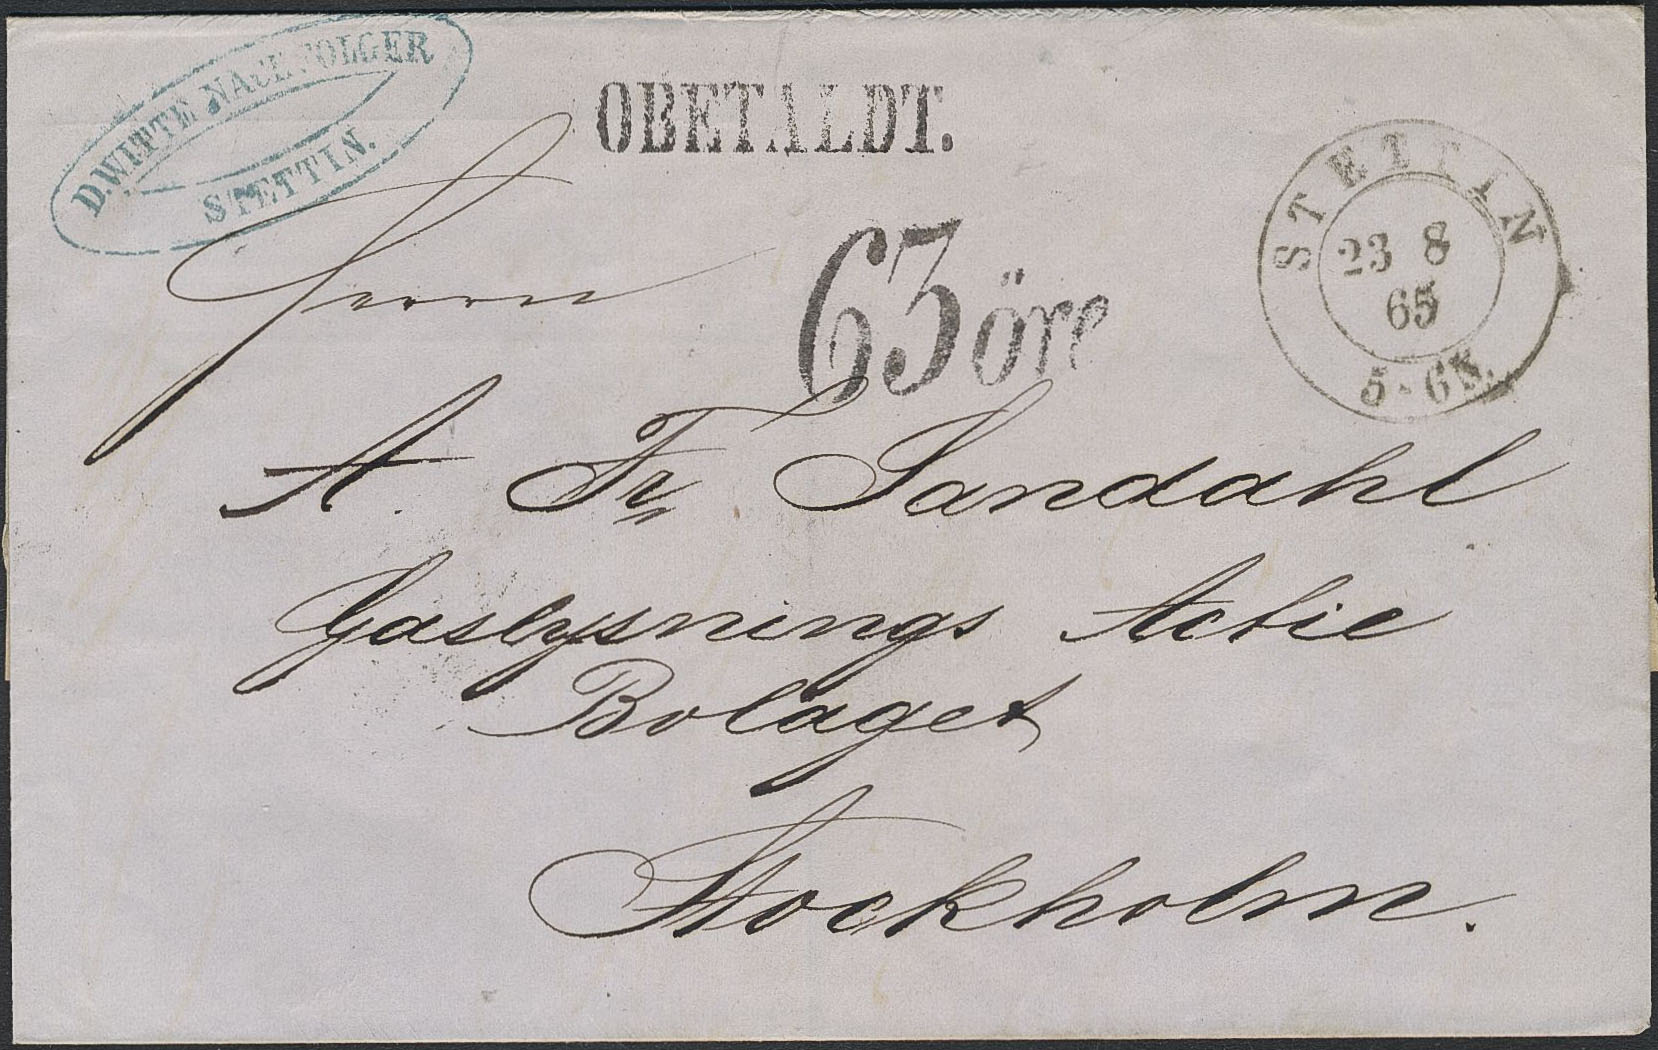 D. WITTE NACHFOLGER
STETTIN.
OBETALDT.
63 öre
STETTIN
23 8
65
5-6N.
Herrn
A. Fr Sandahl
Gaslysnings Actie
Bolaget
Stockholm.